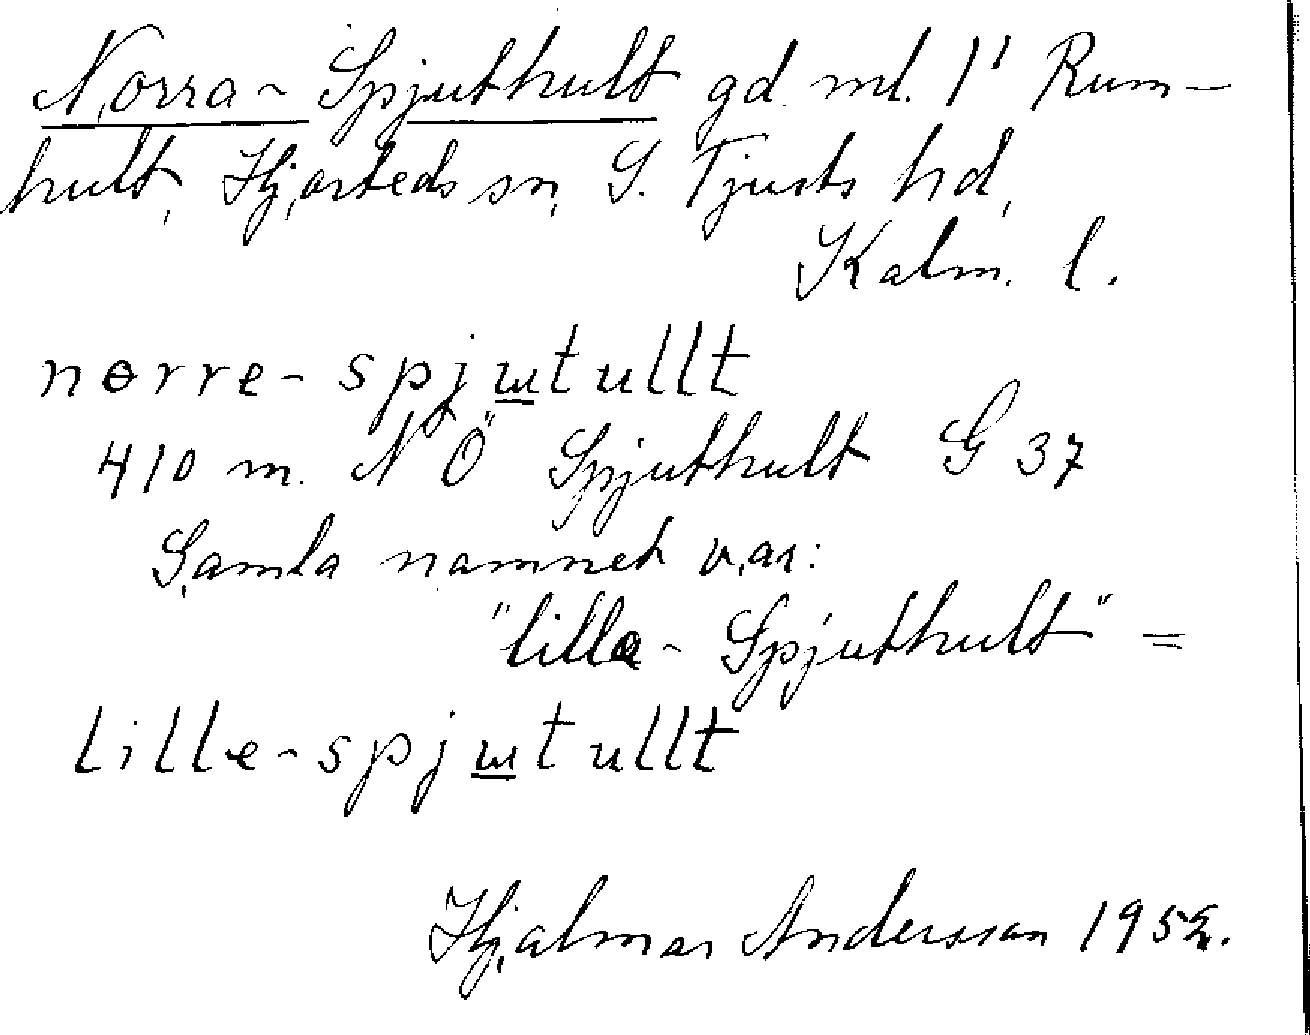 Norra-Spjuthult gd ml. 1' Rum-
hult, Hjorteds sn, S. Tjusts hd,
Kalm. l.
nørre-spjɯtullt
410 m. NÖ Spjuthult G 37
Gamla namnet var:
"lilla-Spjuthult" =
lille-spjɯtullt
Hjalmar Andersson 1952.